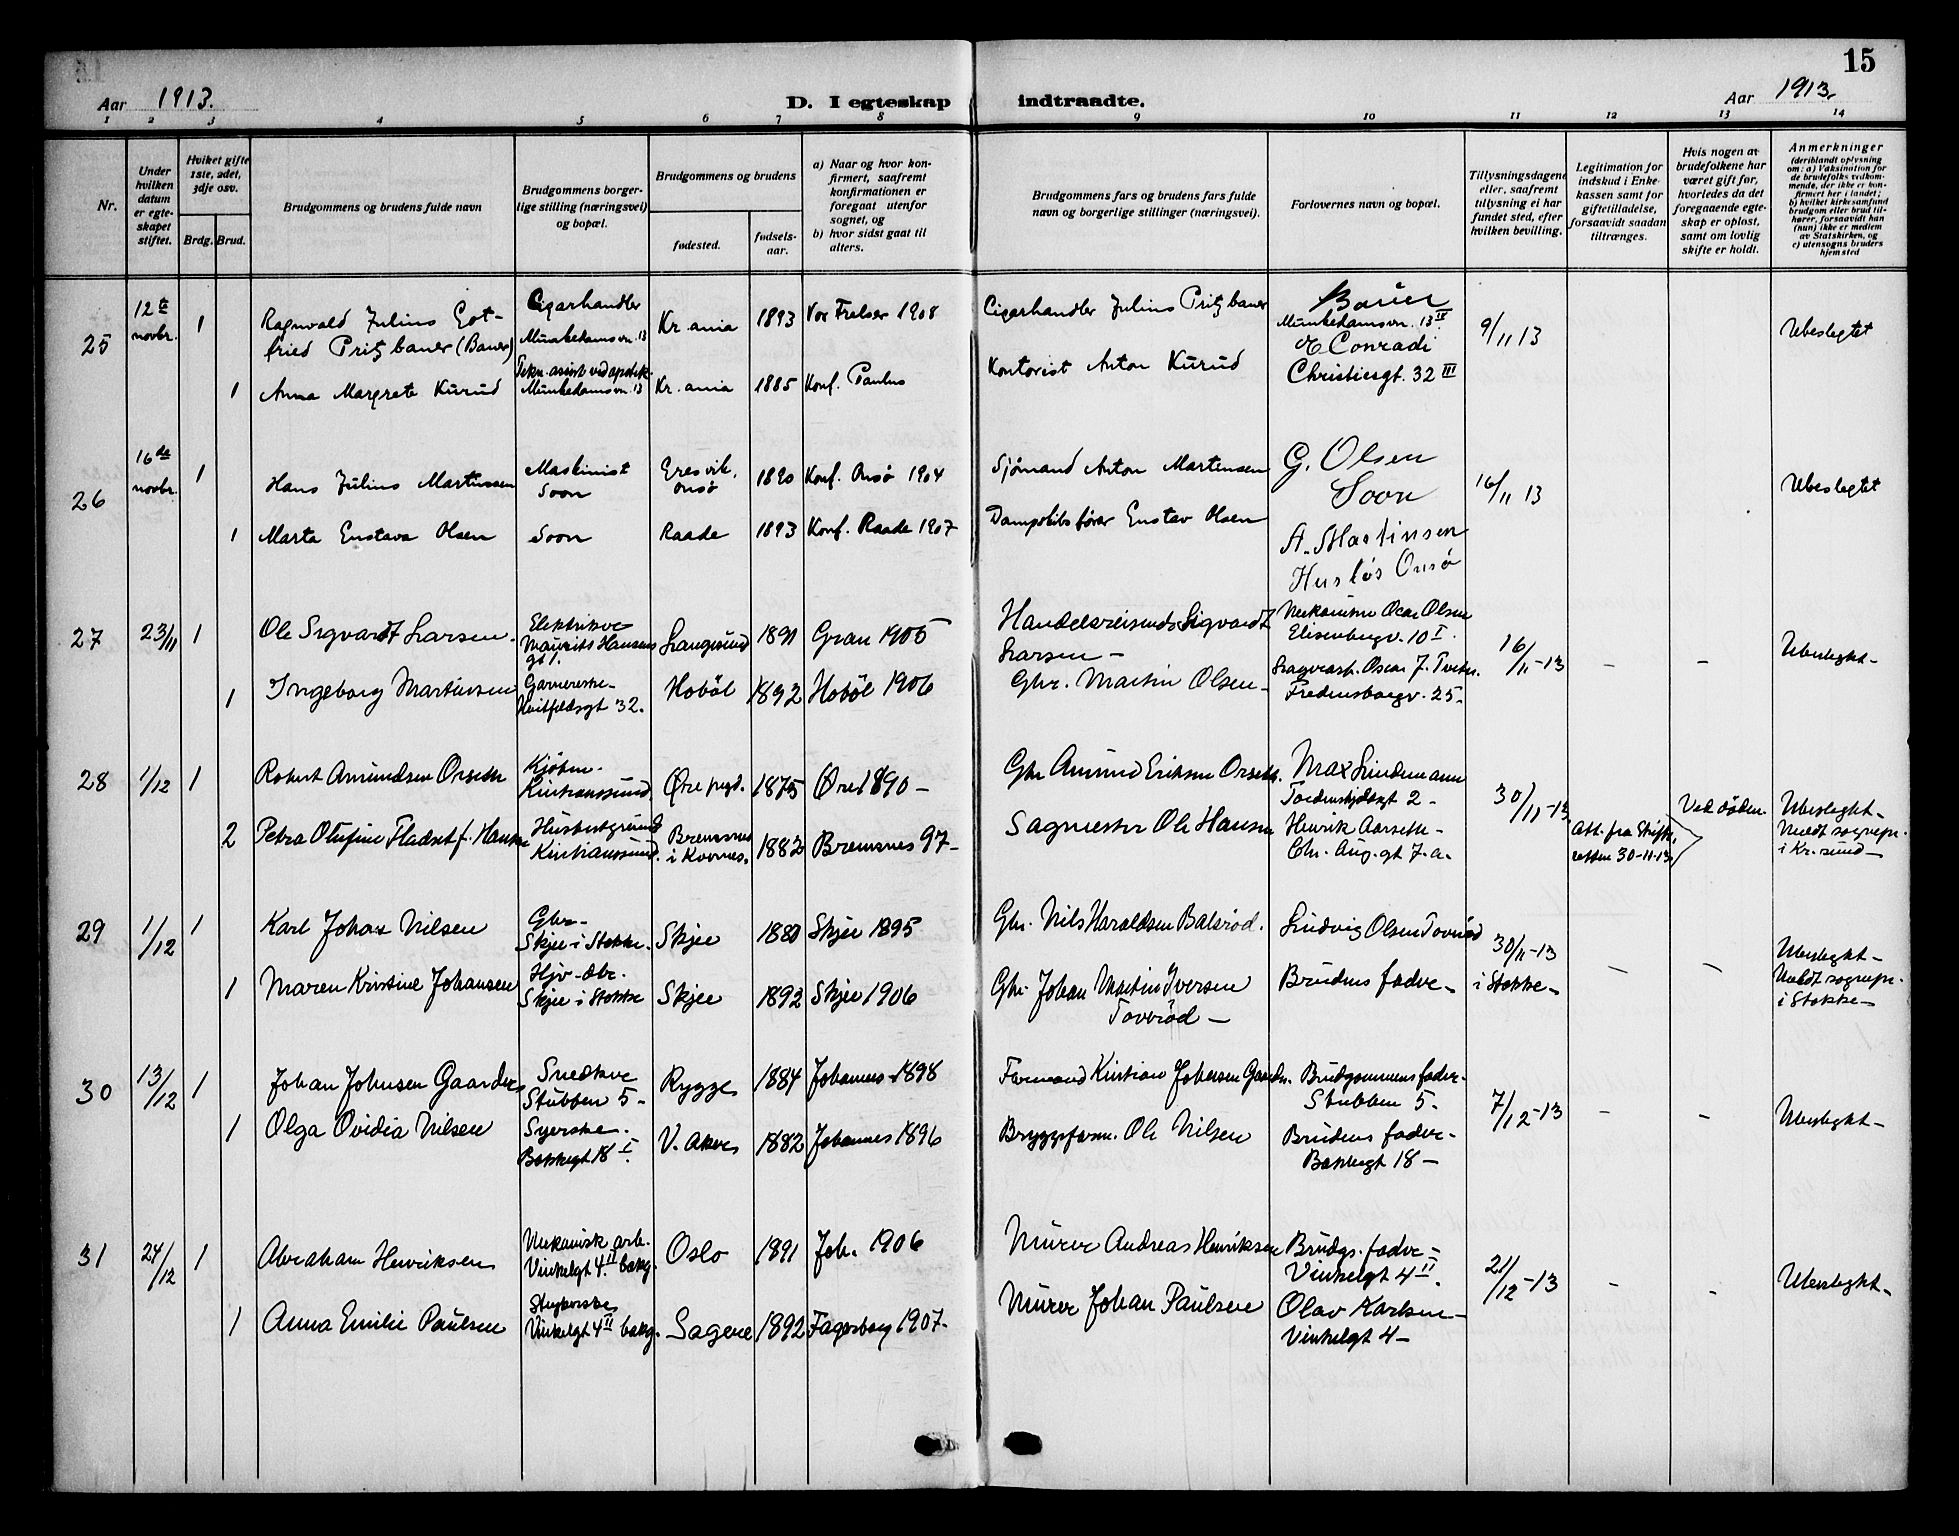 15
Aar 1913.
D. I egteskap indtraadte.
Aar 1913.
1 2 3 4 5 6 7 8 9 10 11 12 13 14
Nr.
Under hvilken datum er egteskapet stiftet.
Hvilket gifte 1ste, 2det, 3dje osv.
Brdg. Brud.
Brudgommens og brudens fulde navn
Brudgommens borgerlige stilling (næringsvei) og bopæl.
Brudgommens og brudens
fødested.
fødselsaar.
a) Naar og hvor konfirmert, saafremt konfirmationen er foregaat utenfor sognet, og
b) hvor sidst gaat til alters.
Brudgommens fars og brudens fars fulde navn og borgerlige stillinger (næringsvei).
Forlovernes navn og bopæl.
Tillysningsdagene eller, saafremt tillysning ei har fundet sted, efter hvilken bevilling.
Legitimation for indskud i Enkekassen samt for giftetilladelse, forsaavidt saadan tiltrænges.
Hvis nogen av brudefolkene har været gift før, hvorledes da det foregaaende egteskap er opløst, samt om lovlig skifte er holdt.
Anmerkninger
(deriblandt oplysning om: a) Vaksination for de brudefolks vedkommende, der ikke er konfirmert her i landet; b) hvilket kirkesamfund brudgom eller brud tilhører, forsaavidt han (hun) ikke er medlem av Statskirken, og c) utensogns bruders hjemsted
25 12te novbr. 1
Ragnvald Julius Gotfried Pritzbauer (Bauer)
Cigarhandler
Munkedamsvn. 13
Kr.ania 1893 Vor Frelser 1908
Cigarhandler Julius Pritzbauer
Bauer
Munkedamsvn. 13 IV
E Conradi
Christiesgt. 32 III
9/11 13
Ubeslegtet
1 Anna Margrete Kurud
Tekn. assist. ved apotek.
Munkedamsvn. 13
Kr.ania 1885 Konf. Paulus
Kontorist Anton Kurud
26 16de novbr. 1
Hans Julius Martinsen
Maskinist
Soon
Gresvik, Onsø 1890 Konf. Onsø 1904
Sjömand Anton Martinsen
G. Olsen
Soon
16/11 13
Ubeslegtet
1 Marta Gustava Olsen
Soon Raade 1893 Konf. Raade 1907
Dampskibsfører Gustav Olsen
A. Martinsen
Husløs Onsø
27 23/11 1
Ole Sigvardt Larsen.
Elektriker
Maurits Hansens gt 1.
Langesund 1891 Gran 1905
Handelsreisende Sigvardt Larsen –
Mekaniker Oscar Olsen
Elisenbergv. 10 I.
16/11-13 – –
Ubeslegtet –
1 Ingeborg Martinsen
Huitfeldsgt 32.
Hobøl 1892 Hobøl 1906
Gbr. Martin Olsen –
Fredensborgv. 25.
28 1/12 1
Robert Amundsen Orseth
Kristianssund.
Øre prgd. 1875 Øre 1890 –
Gbr Amund Eriksen Orseth.
Max Lindemann
Tordenskjoldsgt 2 –
30/11-13
Ubeslegtet –
Meldt sognepr. i Kr.sund –
2 Petra Olufine Fladset f. Hansen
Kristianssund.
Bremsnes i Kvernes. 1882 Bremsnes 97 –
Sagmester Ole Hansen
Henrik Aarseth –
Chr. Aug. gt 7. a.
Att. fra Skifteretten 30-11-13
Ved døden
29 1/12 1
Karl Johan Nilsen
Gbr –
Skjee i Stokke.
Skjee 1880 Skjee 1895
Gbr. Nils Haraldsen Balsrød.
Ludvig Olsen Toverød
30/11-13
i Stokke –
– –
Ubeslegtet –
Meldt sognepr. i Stokke –
1 Maren Kristine Johansen
Skjee i Stokke
Skjee 1892 Skjee 1906
Gbr. Johan Martin Iversen Toverød –
Brudens fader –
30 13/12 1
Johan Johnsen Gaarder
Snedker
Stubben 5 –
Rygge 1884 Johannes 1898
Formand Kristian Johnsen Gaarder.
Brudgommens fader.
Stubben 5.
7/12-13 – –
Ubeslegtet –
1 Olga Ovidia Nilsen
Syerske.
Bakkegt 18 I.
V. Aker 1882 Johannes 1896
Bryggeform. Ole Nilsen
Brudens fader –
Bakkegt 18 –
31 24/12 1
Abraham Henriksen
Mekanisk arb.
Vinkelgt 4 II bakg.
Oslo 1891 Joh. 1906
Murer Andreas Henriksen
Brudgs. fader –
Vinkelgt 4 II.
21/12-13 – –
Ubeslegtet –
1 Anna Emilie Paulsen
Strykerske
Vinkelgt 4 II bakg.
Sagene 1892 Fagerborg 1907.
Murer Johan Paulsen
Olav Karlsen –
Vinkelgt 4 –